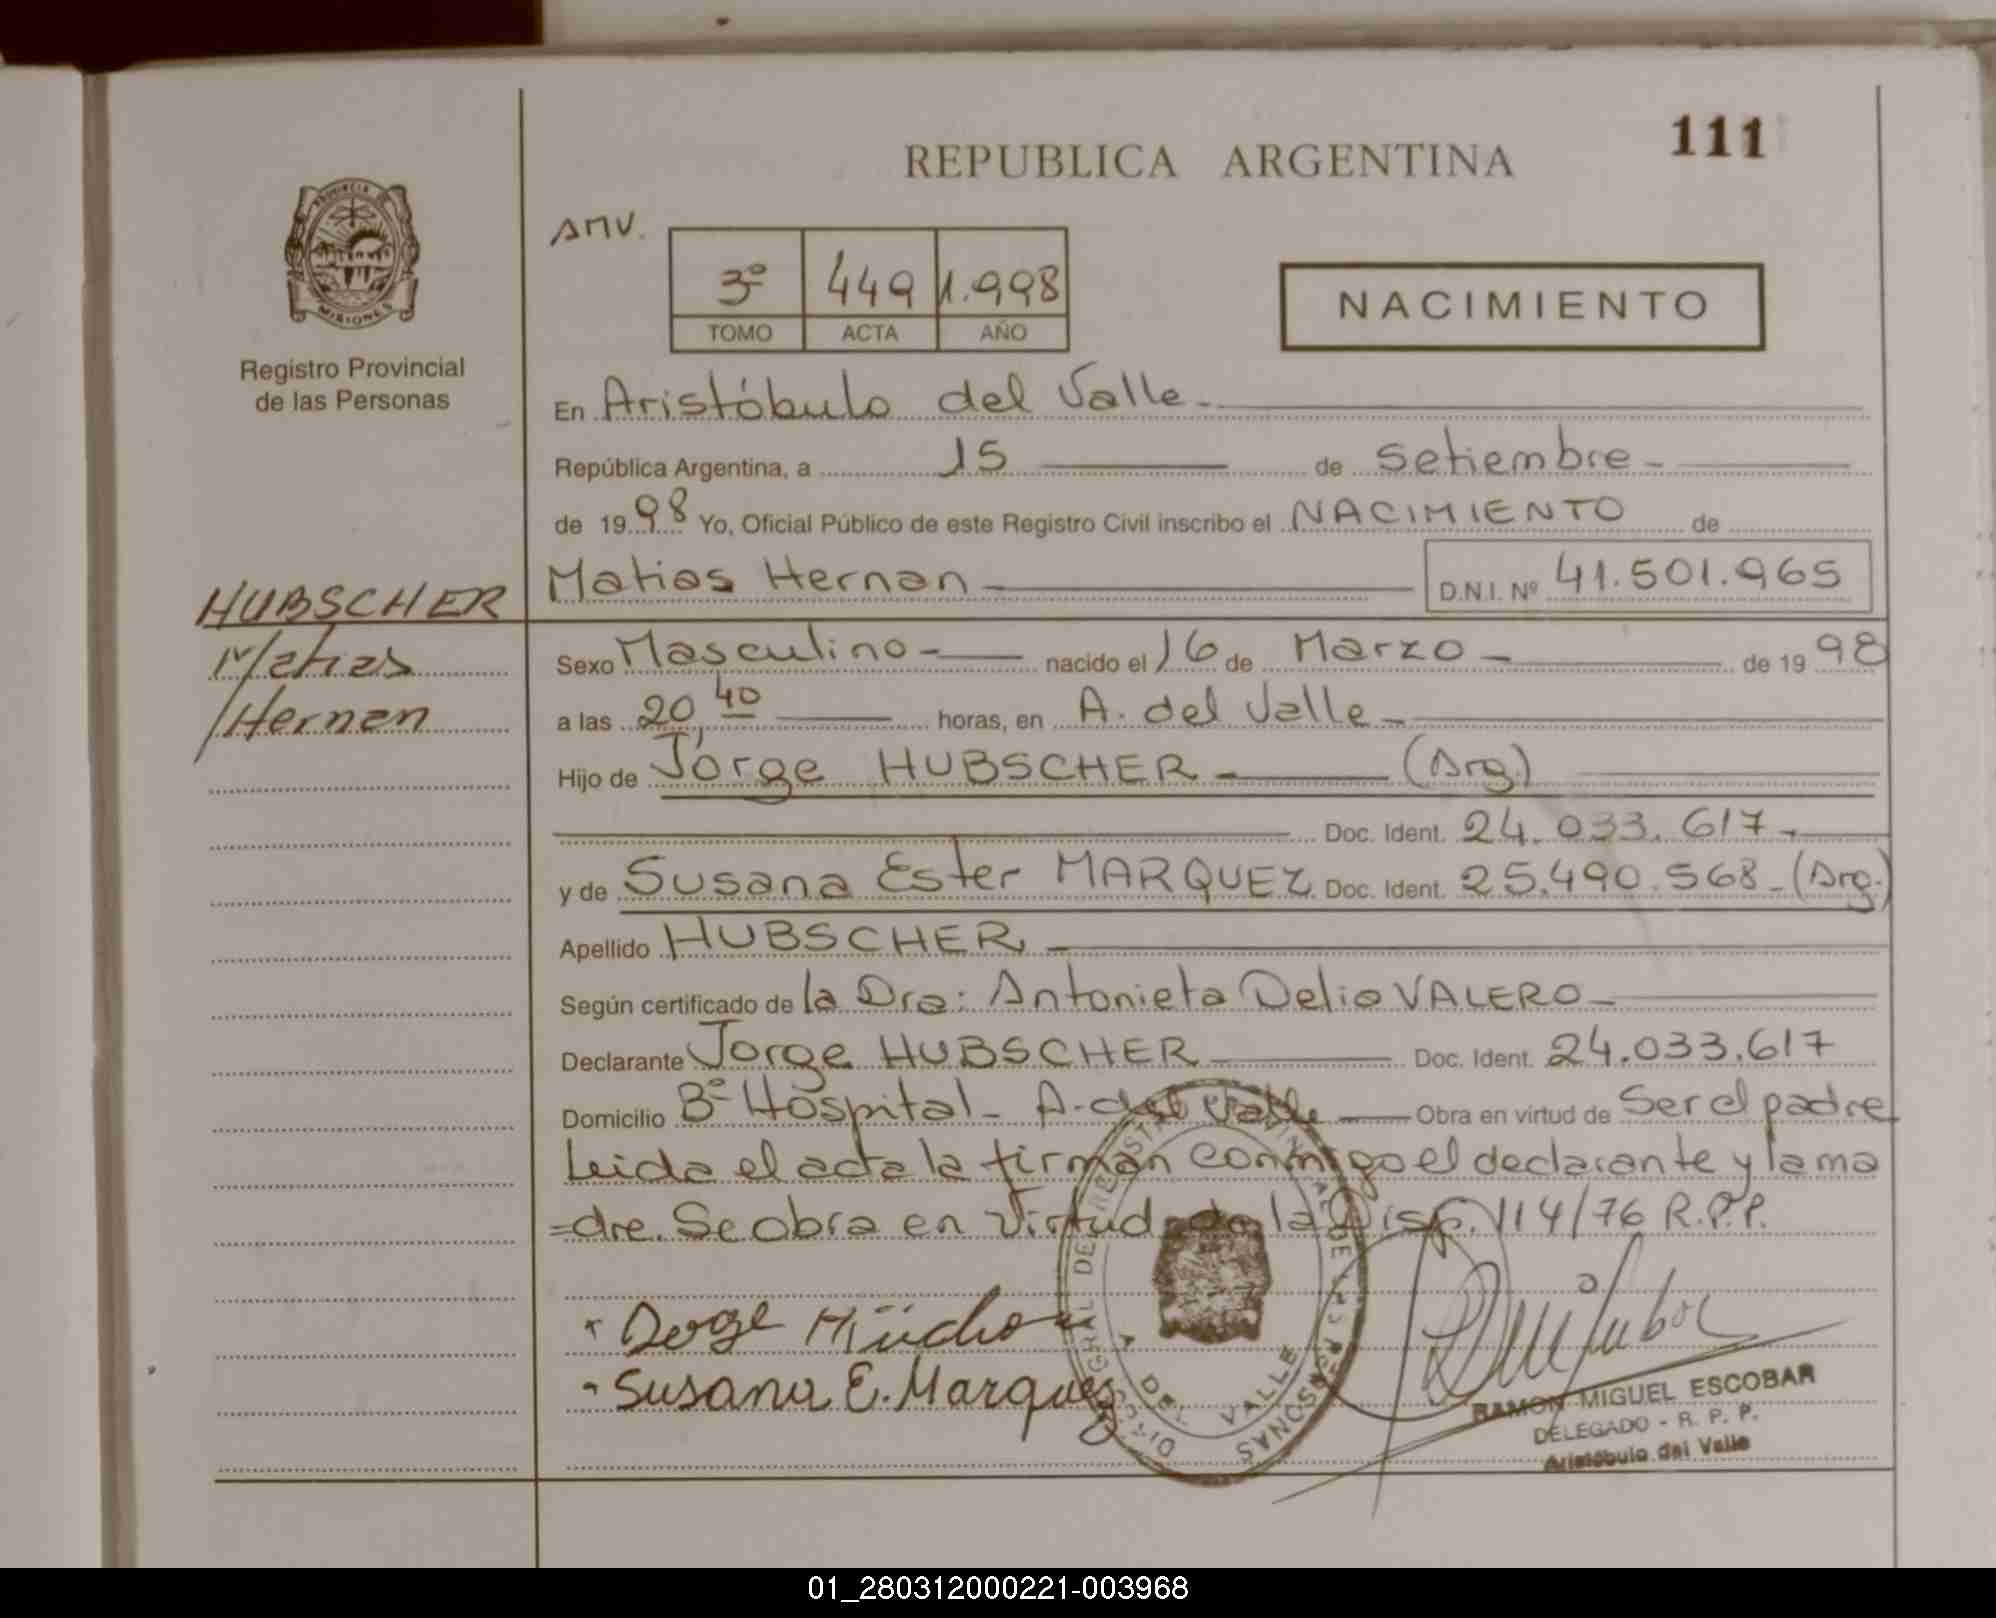 REPUBLICA ARGENTINA
111
PROVINCIA DE
MISIONES
Registro Provincial
de las Personas
AMV.
3º 449 1.998
TOMO ACTA AÑO
NACIMIENTO
En Aristóbulo del Valle.
República Argentina, a 15 de Setiembre
de 1998 Yo, Oficial Público de este Registro Civil inscribo el NACIMIENTO de
Matias Hernan D.N.I. Nº 41.501.965
HUBSCHER
Matias
Hernan
Sexo Masculino nacido el 16 de Marzo de 1998
a las 20,40 horas, en A. del Valle
Hijo de Jorge HUBSCHER (Arg.)
Doc. Ident. 24.033.617
y de Susana Ester MARQUEZ Doc. Ident. 25.490.568 (Arg.)
Apellido HUBSCHER
Según certificado de la Dra: Antonieta Delia VALERO
Declarante Jorge HUBSCHER Doc. Ident. 24.033.617
Domicilio Bº Hospital - A. del Valle Obra en virtud de Ser el padre
Leida el acta la firman conmigo el declarante y la ma
=dre. Se obra en Virtud de la Disp. 114/76 R.P.P.
Susana E. Marquez
DIREC. GRAL DEL REGISTRO PROVINCIAL DE LAS PERSONAS
A DEL VALLE
RAMON MIGUEL ESCOBAR
DELEGADO - R. P. P.
Aristóbulo del Valle
01_280312000221-003968